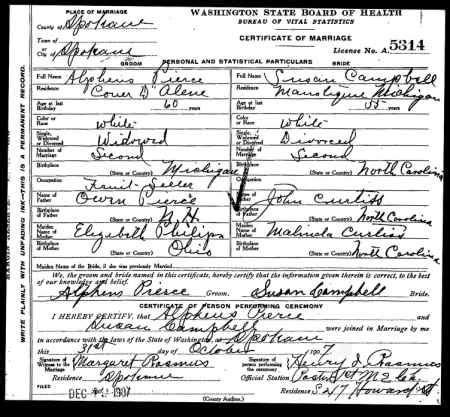 PLACE OF MARRIAGE
County of Spokane
Town of
or
City of Spokane
WASHINGTON STATE BOARD OF HEALTH
BUREAU OF VITAL STATISTICS
CERTIFICATE OF MARRIAGE
License No. A. 5314
GROOM PERSONAL AND STATISTICAL PARTICULARS BRIDE
Full Name Alphens Pierce Full Name Susan Campbell
Residence Couer D Alene Residence Manistique Michigan
Age at last Birthday 60 years Age at last Birthday 55 years
Color or Race White Color or Race White
Single, Widowed or Divorced Widowed Single, Widowed or Divorced Divorced
Number of Marriage Second Number of Marriage Second
Birthplace Michigan Birthplace North Carolina
(State or Country) (State or Country)
Occupation Fruit Seller Occupation
Name of Father Owen Pierce Name of Father John Curtiss
Birthplace of Father N.H. Birthplace of Father North Carolina
(State or Country) (State or Country)
Maiden Name of Mother Elizabeth Philips Maiden Name of Mother Malinda Curtiss
Birthplace of Mother Ohio Birthplace of Mother North Carolina
(State or Country) (State or Country)
Maiden Name of the Bride, if she was previously Married.
We, the groom and bride named in this certificate, hereby certify that the information given therein is correct, to the best
of our knowledge and belief.
Alphens Pierce Groom. Susan Campbell Bride.
CERTIFICATE OF PERSON PERFORMING CEREMONY
I HEREBY CERTIFY, that Alphens Pierce
and Susan Campbell were joined in Marriage by me
in accordance with the laws of the State of Washington, at Spokane
this 31st day of October 1907
Signature of Witness to the Marriage Margaret Rasmus Signature of person performing the Ceremony Henry I. Rasmus
Residence Spokane Official Station Pastor 1st M E Ch.
FILED DEC 1907 Residence S 217 Howard St
(County Auditor.)
WRITE PLAINLY WITH UNFADING INK—THIS IS A PERMANENT RECORD.